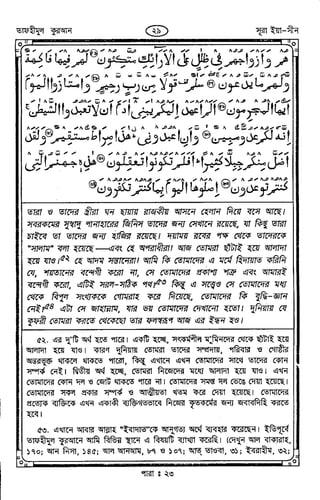 তাফহীমুল কুরআন
২৯
সূরা ইয়া-সীন
هُمْ وَأَزْوَاجُهُمْ فِي ظِلَلٍ عَلَى الْأَرَائِكِ مُتَّكِئُونَ لَهُمْ فِيهَا فَاكِهَةٌ
وَلَهُمْ مَا يَدَّعُونَ سَلَمٌ قَوْلًا مِنْ رَبٍّ رَحِيمٍ وَامْتَازُوا الْيَوْمَ
أَيُّهَا الْمُجْرِمُونَ أَلَمْ أَعْهَدْ إِلَيْكُمْ يَبَنِي آدَمَ أَنْ لَا تَعْبُدُوا الشَّيْطَنَ
إِنَّهُ لَكُمْ عَدُوٌّ مُبِينٌ وَأَنِ اعْبُدُونِي هَذَا صِرَاطٌ مُسْتَقِيمٌ وَلَقَدْ
أَضَلَّ مِنْكُمْ جِبِلًّا كَثِيرًا أَفَلَمْ تَكُونُوا تَعْقِلُونَ هَذِهِ جَهَنَّمُ الَّتِي
كُنْتُمْ تُوعَدُونَ اصْلَوْهَا الْيَوْمَ بِمَا كُنْتُمْ تَكْفُرُونَ
তারা ও তাদের স্ত্রীরা ঘন ছায়ায় রাজকীয় আসনে হেলান দিয়ে বসে আছে।
সবরকমের সুস্বাদু পানাহারের জিনিস তাদের জন্য সেখানে রয়েছে, যা কিছু তারা
চাইবে তা তাদের জন্য হাজির রয়েছে। দয়াময় রবের পক্ষ থেকে তাদেরকে
"সালাম" বলা হয়েছে—এবং হে অপরাধীরা! আজ তোমরা ছাঁটাই হয়ে আলাদা
হয়ে যাও।৫২ হে আদম সন্তানেরা! আমি কি তোমাদের এ মর্মে হিদায়াত করিনি
যে, শয়তানের বন্দেগী করো না, সে তোমাদের প্রকাশ্য শত্রু এবং আমারই
বন্দেগী করো, এটিই সরল-সঠিক পথ?৫৩ কিন্তু এ সত্ত্বেও সে তোমাদের মধ্য
থেকে বিপুল সংখ্যককে গোমরাহ করে দিয়েছে, তোমাদের কি বুদ্ধি-জ্ঞান
নেই?৫৪ এটা সে জাহান্নাম, যার ভয় তোমাদের দেখানো হতো। দুনিয়ায় যে
কুফরী তোমরা করতে থেকেছো তার ফলস্বরূপ আজ এর ইন্ধন হও।
৫২. এর দু'টি অর্থ হতে পারে। একটি হচ্ছে, সৎকর্মশীল মু'মিনদের থেকে ছাঁটাই হয়ে
আলাদা হয়ে যাও। কারণ দুনিয়ায় তোমরা তাদের সম্প্রদায়, পরিবার ও গোষ্ঠীর
অন্তরভুক্ত থাকলে থাকতে পারো, কিন্তু এখানে এখন তোমাদের সাথে তাদের কোন
সম্পর্ক নেই। দ্বিতীয় অর্থ হচ্ছে, তোমরা নিজেদের মধ্যে আলাদা হয়ে যাও। এখন
তোমাদের কোন দল ও জোট থাকতে পারে না। তোমাদের সমস্ত দল ভেঙে দেয়া হয়েছে।
তোমাদের সকল প্রকার সম্পর্ক ও আত্মীয়তা খতম করে দেয়া হয়েছে। তোমাদের
প্রত্যেক ব্যক্তিকে এখন একাকী ব্যক্তিগতভাবে নিজের কৃতকর্মের জন্য জবাবদিহি করতে
হবে।
৫৩. এখানে আবার আল্লাহ "ইবাদাত"কে আনুগত্য অর্থে ব্যবহার করেছেন। ইতিপূর্বে
তাফহীমুল কুরআনে আমি বিভিন্ন স্থানে এ বিষয়টি ব্যাখ্যা করেছি। (দেখুন আল বাকারাহ,
১৭০; আন নিসা, ১৪৫; আল আনআম, ৮৭ ও ১০৭; আত্ তাওবা, ৩১; ইবরাহীম, ৩২;
পারা : ২৩